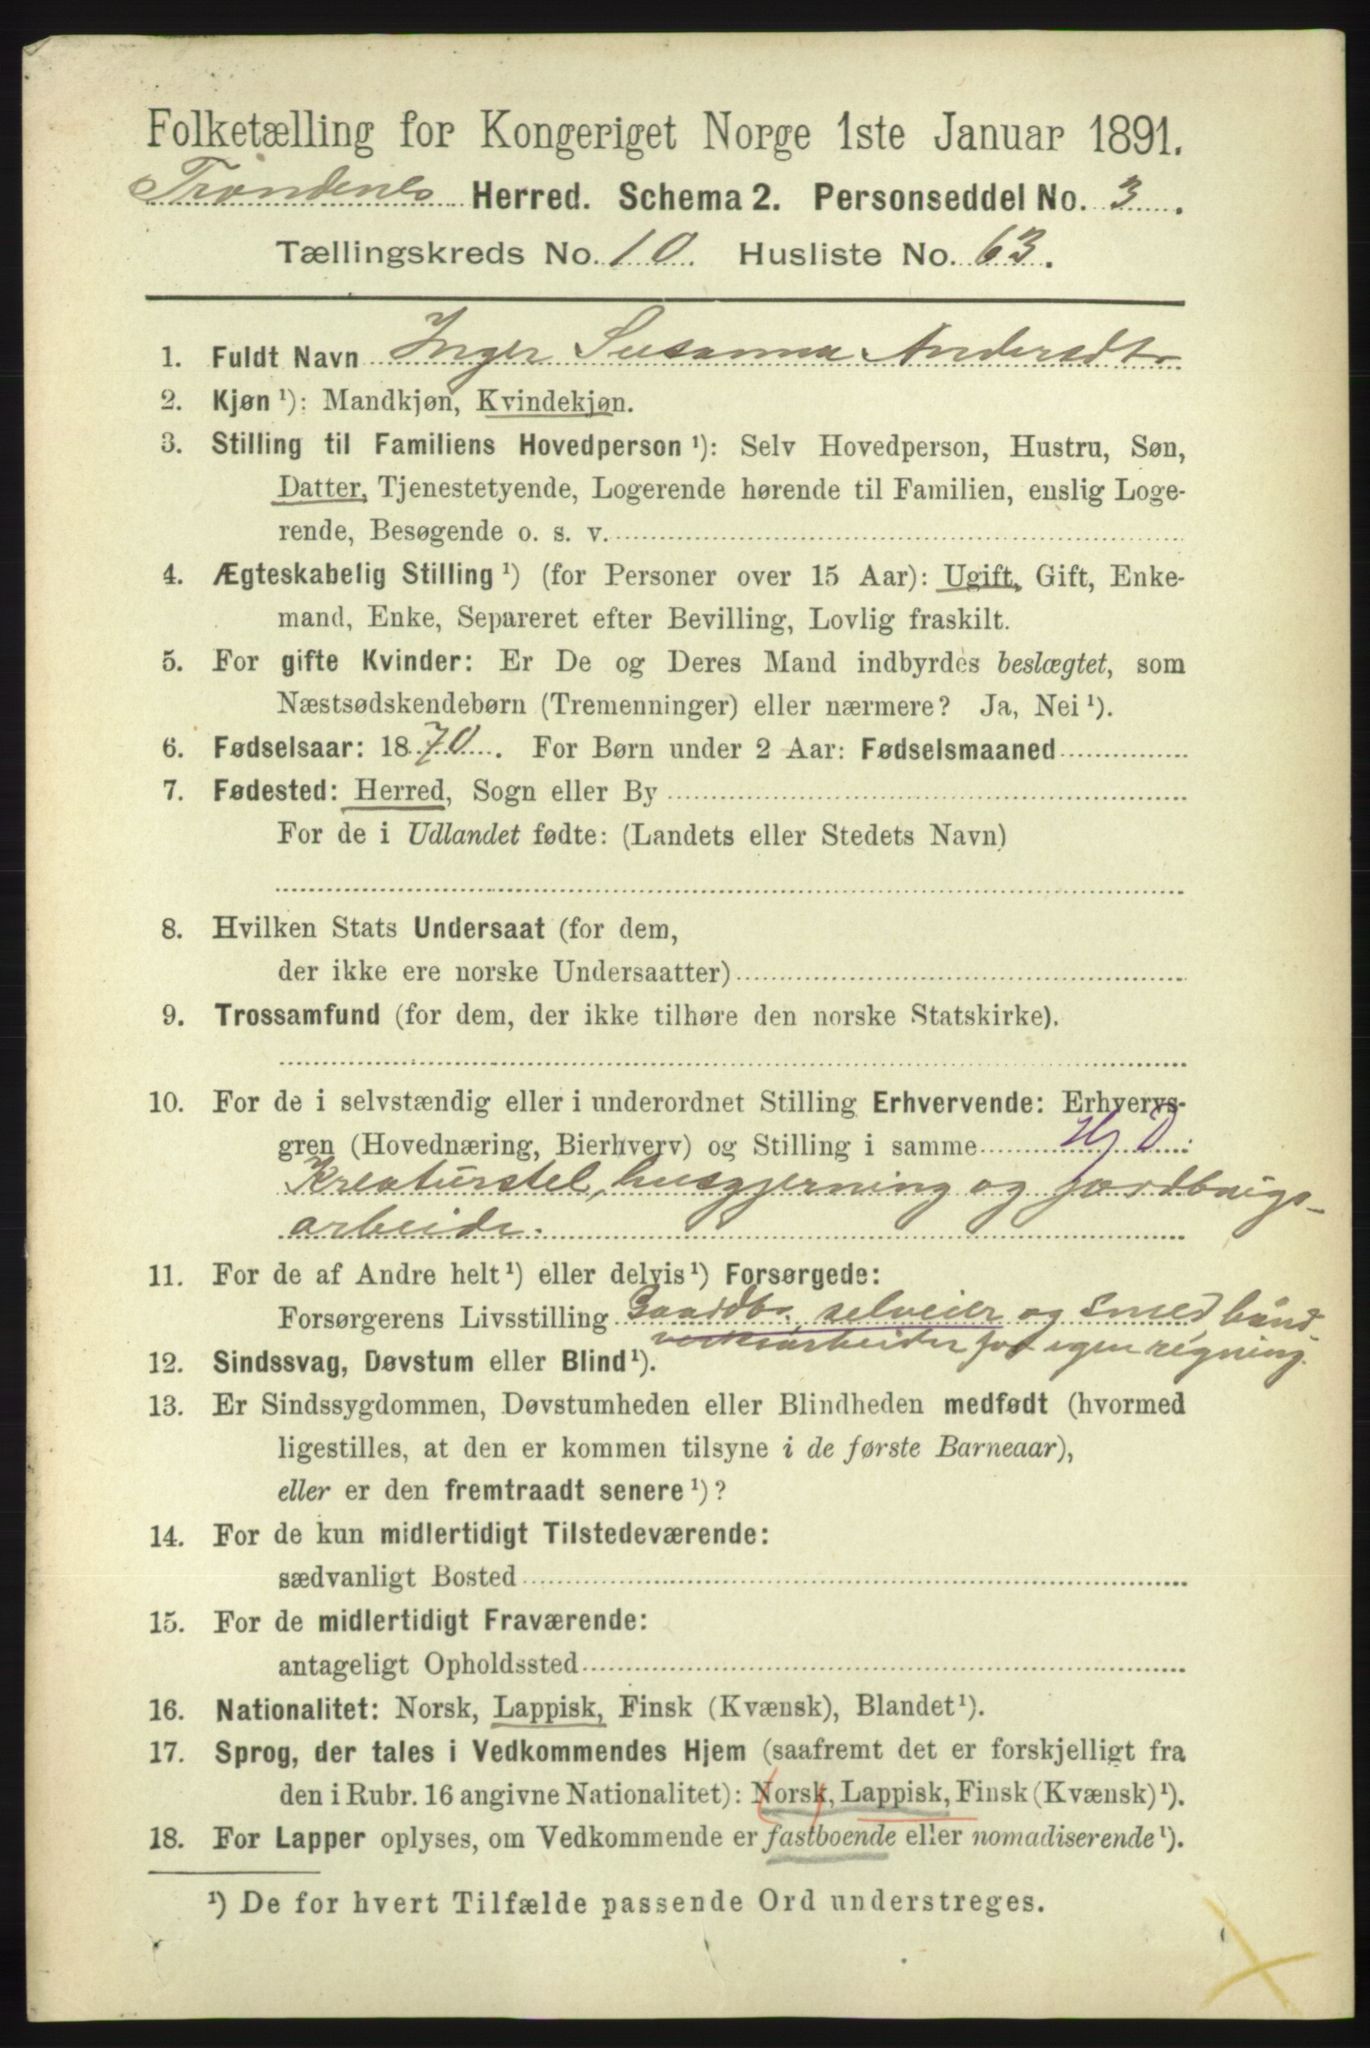 Folketælling for Kongeriget Norge 1ste Januar 1891.
Trondenes Herred. Schema 2. Personseddel No. 3.
Tællingskreds No. 10 Husliste No. 63.
1. Fuldt Navn Inger Susanna Andersdtr
2. Kjøn ¹): Mandkjøn, Kvindekjøn.
3. Stilling til Familiens Hovedperson ¹): Selv Hovedperson, Hustru, Søn,
Datter, Tjenestetyende, Logerende hørende til Familien, enslig Loge-
rende, Besøgende o. s. v.
4. Ægteskabelig Stilling ¹) (for Personer over 15 Aar): Ugift, Gift, Enke-
mand, Enke, Separeret efter Bevilling, Lovlig fraskilt.
5. For gifte Kvinder: Er De og Deres Mand indbyrdes beslægtet, som
Næstsødskendebørn (Tremenninger) eller nærmere? Ja, Nei ¹).
6. Fødselsaar: 1870. For Børn under 2 Aar: Fødselsmaaned
7. Fødested: Herred, Sogn eller By
For de i Udlandet fødte: (Landets eller Stedets Navn)
8. Hvilken Stats Undersaat (for dem,
der ikke ere norske Undersaatter)
9. Trossamfund (for dem, der ikke tilhøre den norske Statskirke).
10. For de i selvstændig eller i underordnet Stilling Erhvervende: Erhvervs-
gren (Hovednæring, Bierhverv) og Stilling i samme Hj D
Kreaturstel, husgjerning og jordbrugs-
arbeide.
11. For de af Andre helt ¹) eller delvis ¹) Forsørgede:
Forsørgerens Livsstilling Gaardbr. selveier og Smed haand-
verksarbeider for egen regning.
12. Sindssvag, Døvstum eller Blind ¹).
13. Er Sindssygdommen, Døvstumheden eller Blindheden medfødt (hvormed
ligestilles, at den er kommen tilsyne i de første Barneaar),
eller er den fremtraadt senere ¹)?
14. For de kun midlertidigt Tilstedeværende:
sædvanligt Bosted
15. For de midlertidigt Fraværende:
antageligt Opholdssted
16. Nationalitet: Norsk, Lappisk, Finsk (Kvænsk), Blandet ¹).
17. Sprog, der tales i Vedkommendes Hjem (saafremt det er forskjelligt fra
den i Rubr. 16 angivne Nationalitet): Norsk, Lappisk, Finsk (Kvænsk) ¹).
18. For Lapper oplyses, om Vedkommende er fastboende eller nomadiserende ¹).
¹) De for hvert Tilfælde passende Ord understreges.